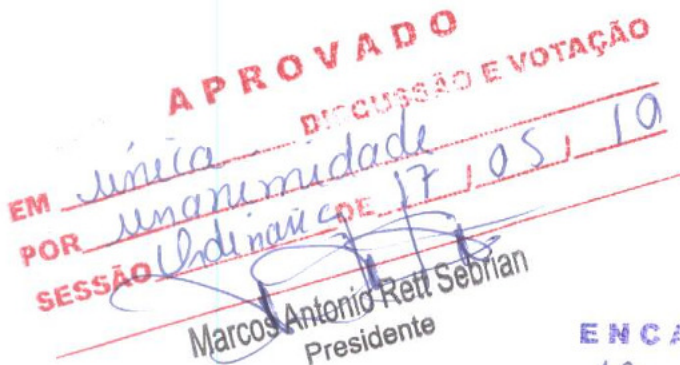 APROVADO
EM única DISCUSSÃO E VOTAÇÃO
POR unanimidade
SESSÃO Ordinária DE 17 / 05 / 10
Marcos Antonio Rett Sebrian
Presidente
ENCA